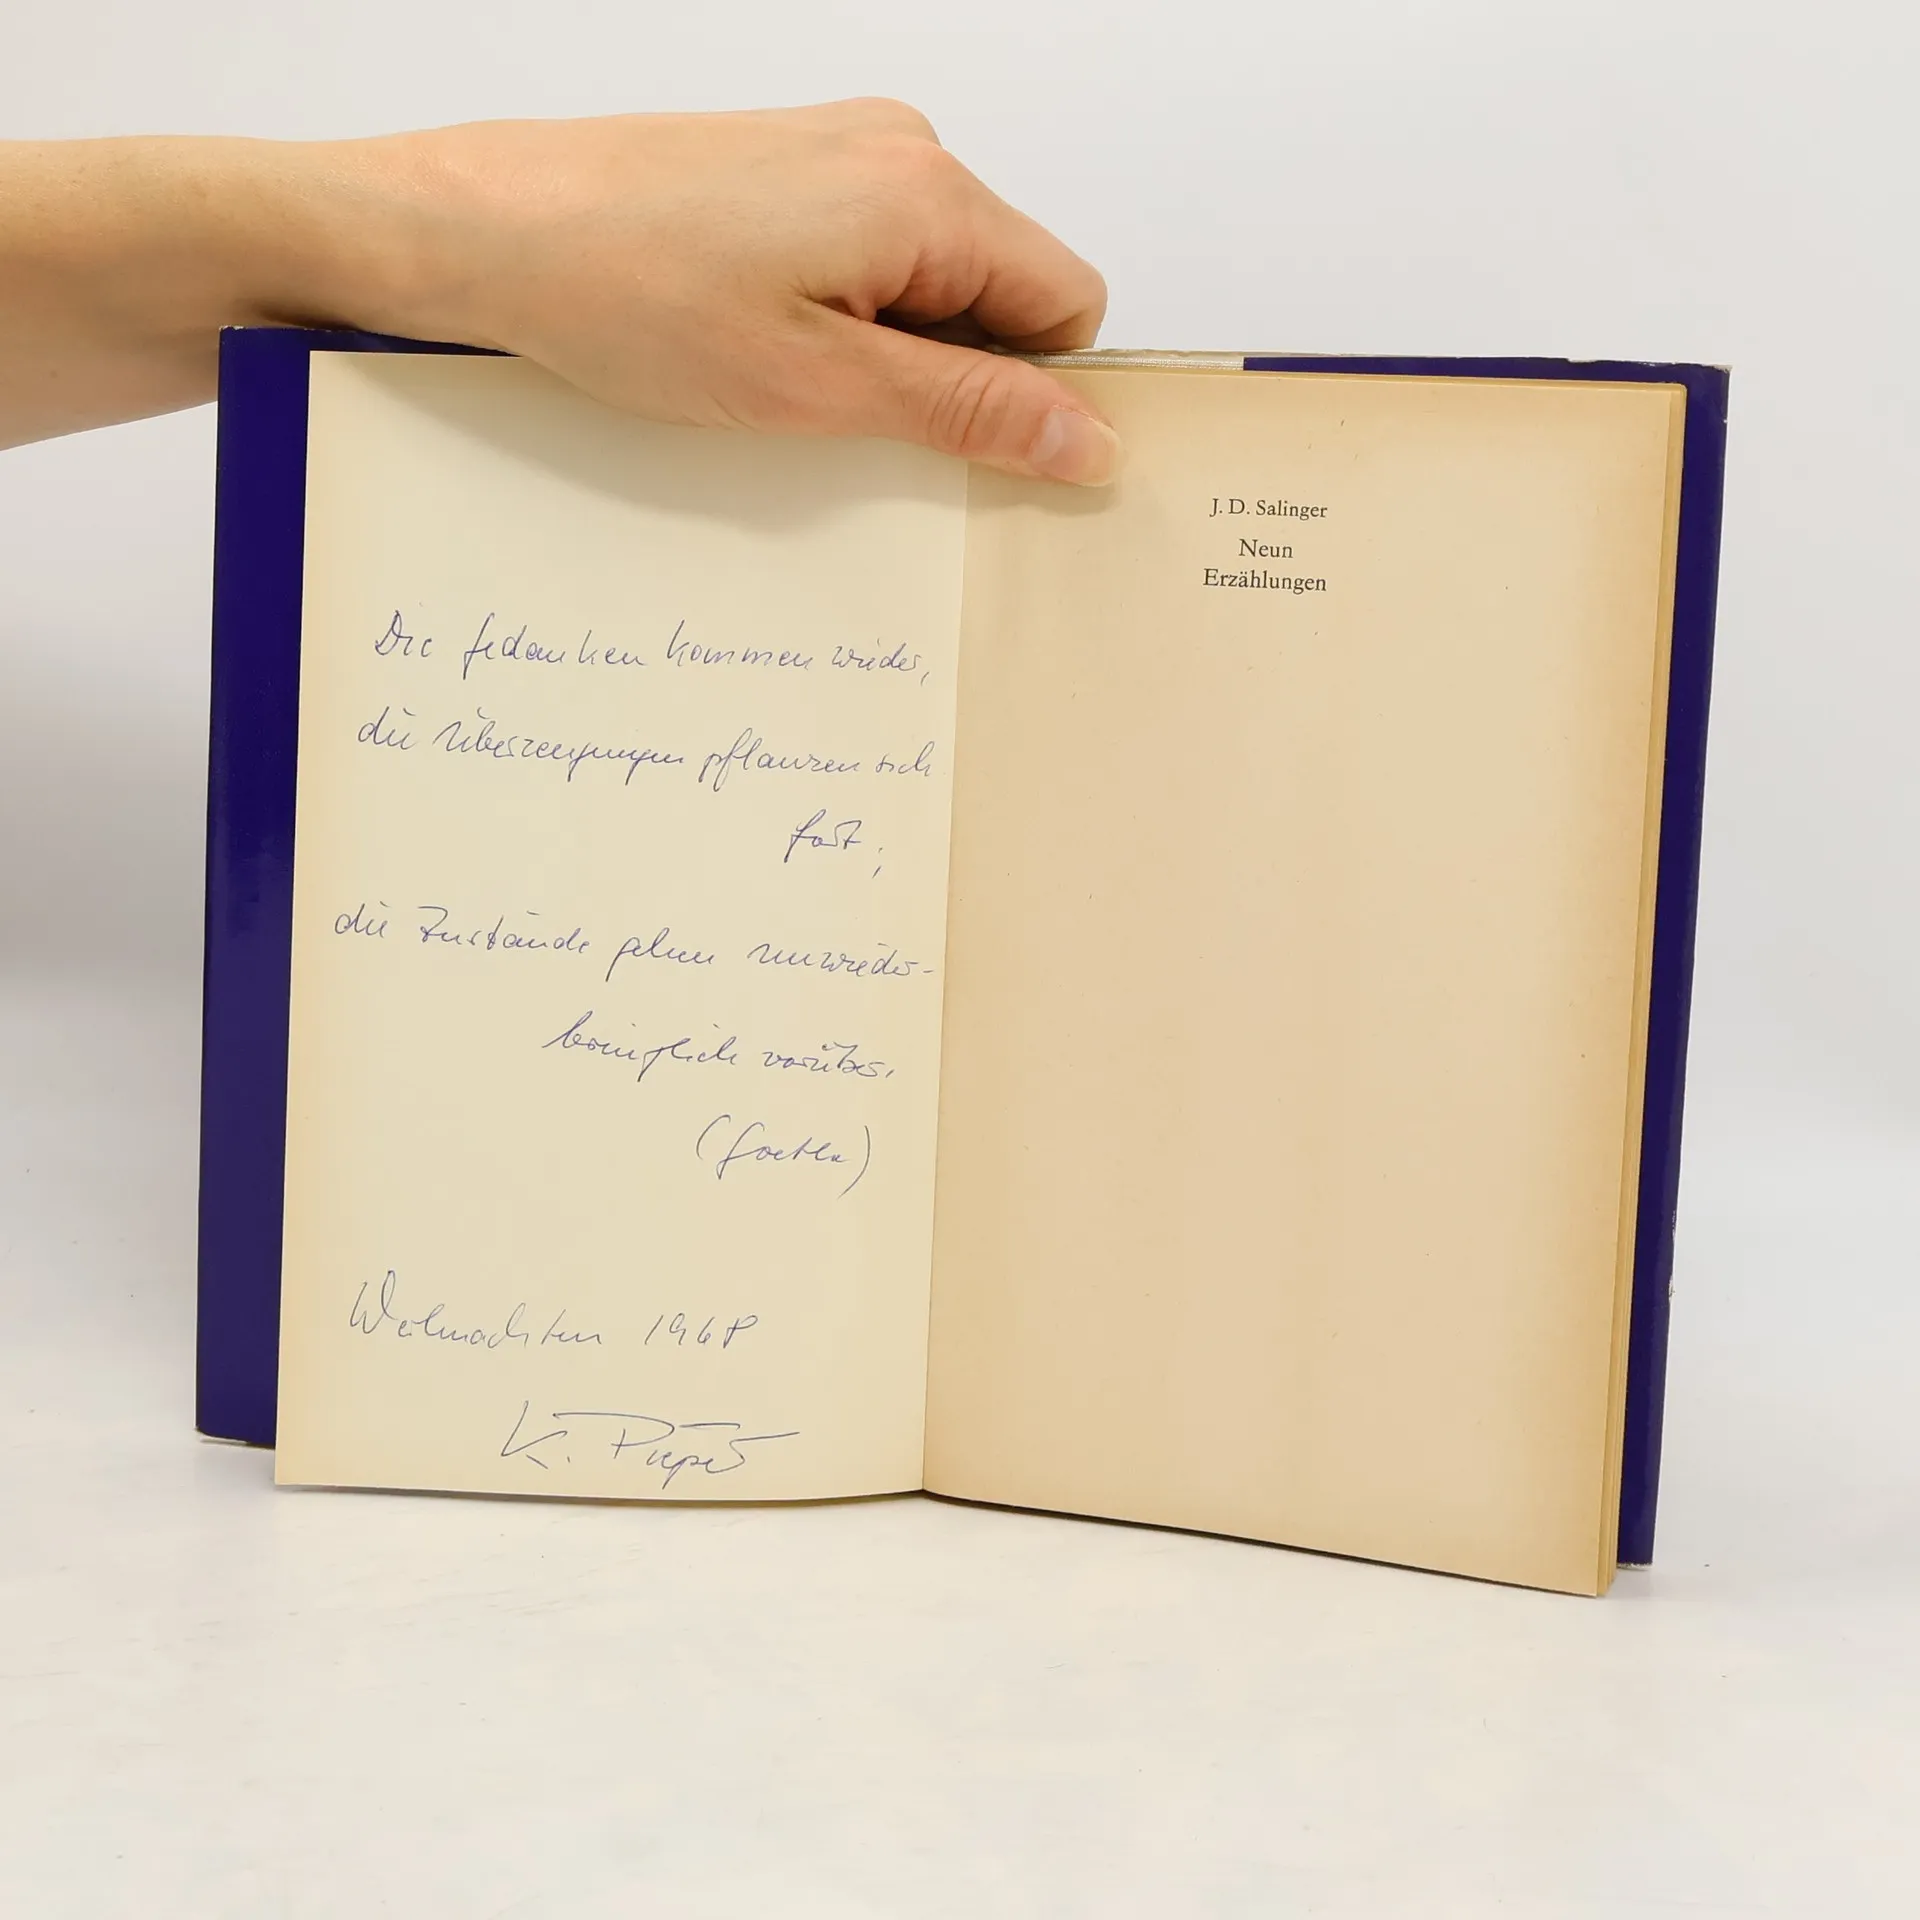 Die Gedanken kommen wieder,
die Überzeugungen pflanzen sich
fort;
die Zustände gehen unwieder-
bringlich vorüber.
(Goethe)
Weihnachten 1968
K.
J. D. Salinger
Neun
Erzählungen